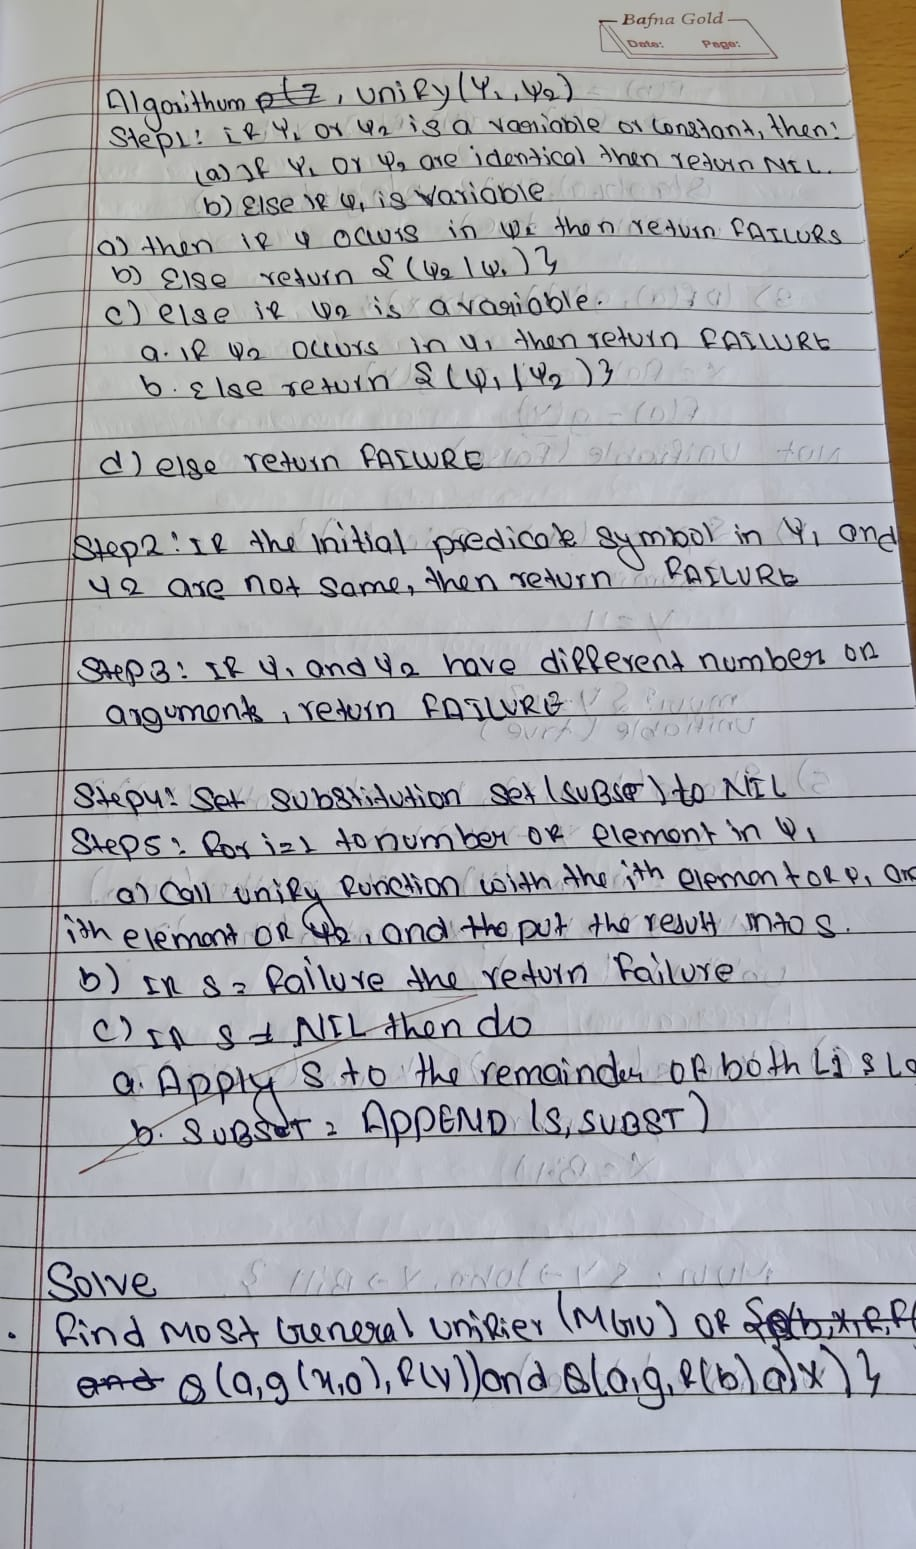 Bafna Gold
Date: Page:
Algorithum, unify(Ψ1, Ψ2)
Step1: if Ψ1 or Ψ2 is a variable or constant, then:
(a) If Ψ1 or Ψ2 are identical then return NIL.
b) Else if Ψ1 is variable
a) then if Ψ occurs in Ψ2 then return FAILURS
b) Else return {(Ψ2/Ψ1)}
c) else if Ψ2 is a variable.
a. if Ψ2 occurs in Ψ1 then return FAILURE
b. Else return {(Ψ1/Ψ2)}
d) else return FAILURE
Step2: If the initial predicate symbol in Ψ1 and
Ψ2 are not same, then return FAILURE
Step3: If Ψ1 and Ψ2 have different number on
arguments, return FAILURE
Step4: Set Substitution set (SUBST) to NIL
Step5: for i=1 to number of element in Ψ1
a) Call unify function with the ith element of
ith element of Ψ2, and the put the result into S.
b) If S = Failure the return Failure
c) If S ≠ NIL then do
a. Apply S to the remainder of both
b. SUBSET = APPEND (S, SUBST)
Solve
. find Most General Unifier (MGU) of
Q(a,g(x,a),f(y)) and Q(a,g,f(b)a)x)}